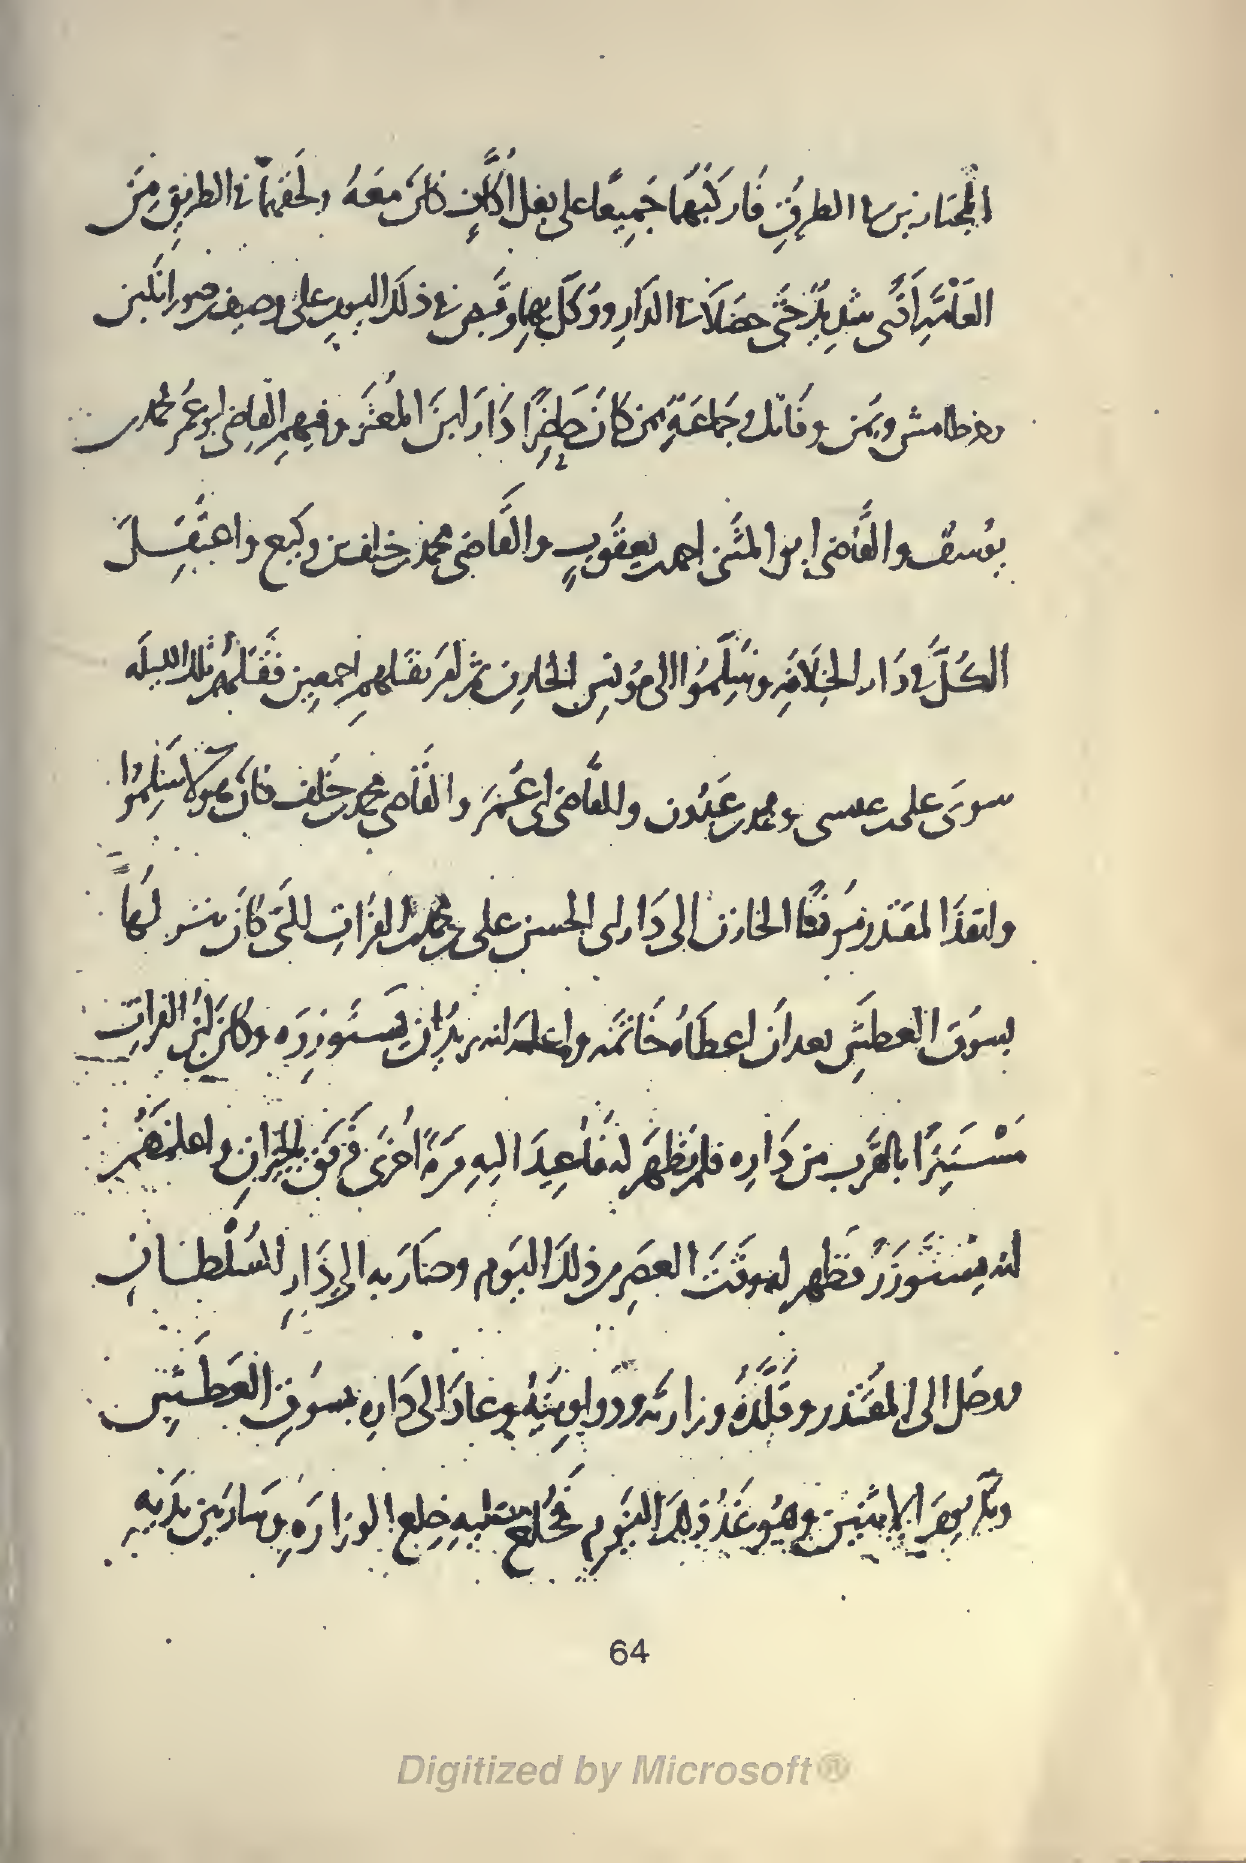 المجتازين بها الطرق فاركبهما جميعا على بغل اكاف كان معه ولحقهما في الطريق من
العامة اذى شديد حتى حصلا في الدار ووكل بهما وقبض في ذلك اليوم على وصيف بن صوارتكين
وخطارمش ويمن وفاتك وجماعة ممن كان حاضرا دار ابن المعتز وفيهم القاضي ابو عمر محمد بن
يوسف والقاضي ابو المثنى احمد بن يعقوب والقاضي محمد بن خلف بن وكيع واعتقل
الكل في دار الخلافة وسلموا الى مونس الخازن ثم امر بقتلهم اجمعين فقتلهم تلك الليلة
سوى علي بن عيسى ومحمد بن عبدون والقاضي ابي عمر والقاضي محمد بن خلف فان هولا سلموا
وانفذ المقتدر مونسا الخازن الى دار ابي الحسن علي بن محمد بن الفرات التي كان ينزلها
بسوق العطش بعد ان اعطاه خاتمه واعلمه انه يريد ان يستوزره وكان ابن الفرات
مستترا بالقرب من داره فلم يظهر له فاعيد اليه مرة اخرى فرفق بالجيران واعلمهم
انه يستوزر فظهر له وقت العصر من ذلك اليوم وصار به الى دار السلطان
ووصل الى المقتدر وقلده وزارته ودواوينه وعاد الى داره بسوق العطش
وبكر يوم الاثنين وهو غد ذلك اليوم فخلع عليه خلع الوزارة وسار بين يديه
64
Digitized by Microsoft®